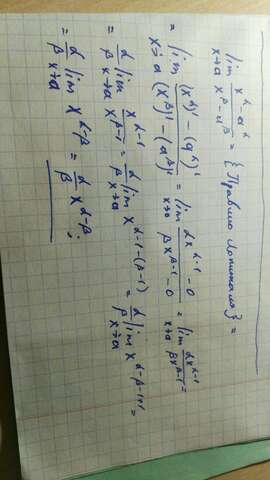 lim x→a (x^α - a^α)/(x^β - a^β) = {Правило Лопиталя} =
= lim x→a ((x^α)' - (a^α)')/((x^β)' - (a^β)') = lim x→a (αx^(α-1) - 0)/(βx^(β-1) - 0) = lim x→a (αx^(α-1))/(βx^(β-1)) =
= α/β lim x→a x^(α-1)/x^(β-1) = α/β lim x→a x^(α-1-(β-1)) = α/β lim x→a x^(α-β-1+1) =
= α/β lim x→a x^(α-β) = α/β x^(α-β);